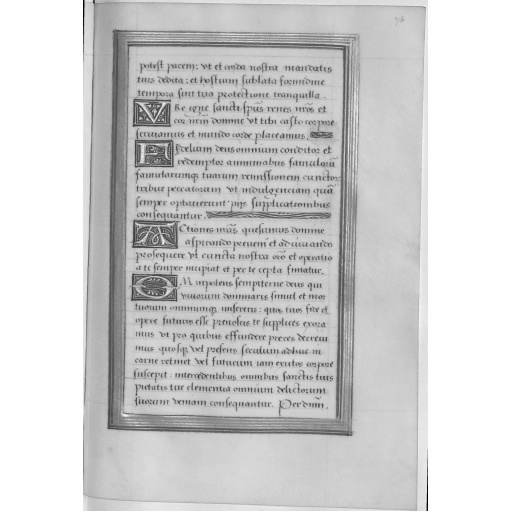 potest pacem: vt et corda nostra mandatis
tuis dedita: et hostium sublata formidine
tempora sint tua protectione tranquilla.
Vre igne sancti spūs renes nr̄os et
cor nrm̄ domine vt tibi casto corpore
seruiamus et mundo corde placeamus.
Fidelium deus omnium conditor et
redemptor animabus famulorū
famularumq; tuarum remissionem cunctor
tribue peccatorum vt indulgenciam quā
semper optauerunt piis supplicationibus
consequantur.
Actiones nr̄as quesumus domine
aspirando preueni et adiuuando
prosequere vt cuncta nostra orō et operatio
a te semper incipiat et per te cepta finiatur.
Omnipotens sempiterne deus qui
viuorum dominaris simul et mor
tuorum omniumq; misereris: quos tuos fide et
opere futuros esse prenoscis te supplices exora
mus vt pro quibus effundere preces decreui
mus quosq; vel presens seculum adhuc in
carne retinet vel futurum iam exutos corpore
suscepit: intercedentibus omnibus sanctis tuis
pietatis tue clementia omnium delictorum
suorum veniam consequantur. Per dnm̄.